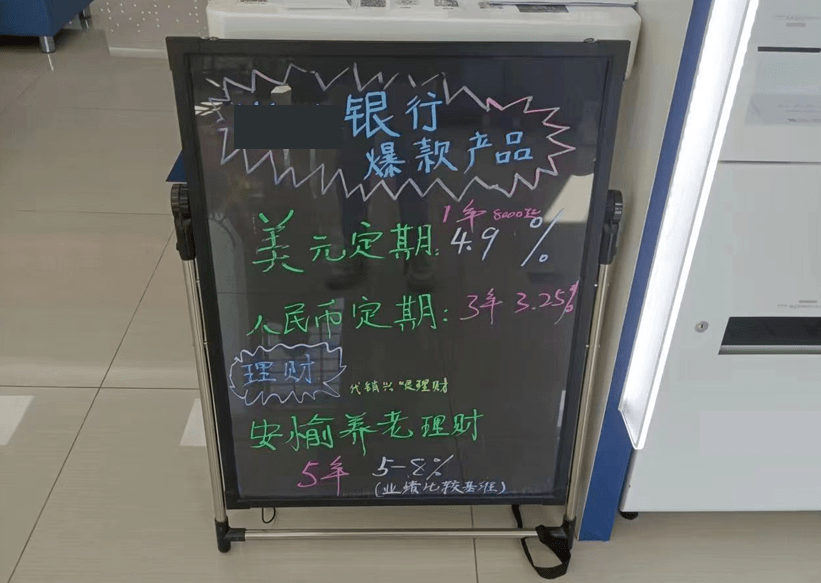 银行
爆款产品
1年 8000起
美元定期: 4.9%
人民币定期: 3年 3.25%
理财
代销兴银理财
安愉养老理财
5年 5-8%
(业绩比较基准)